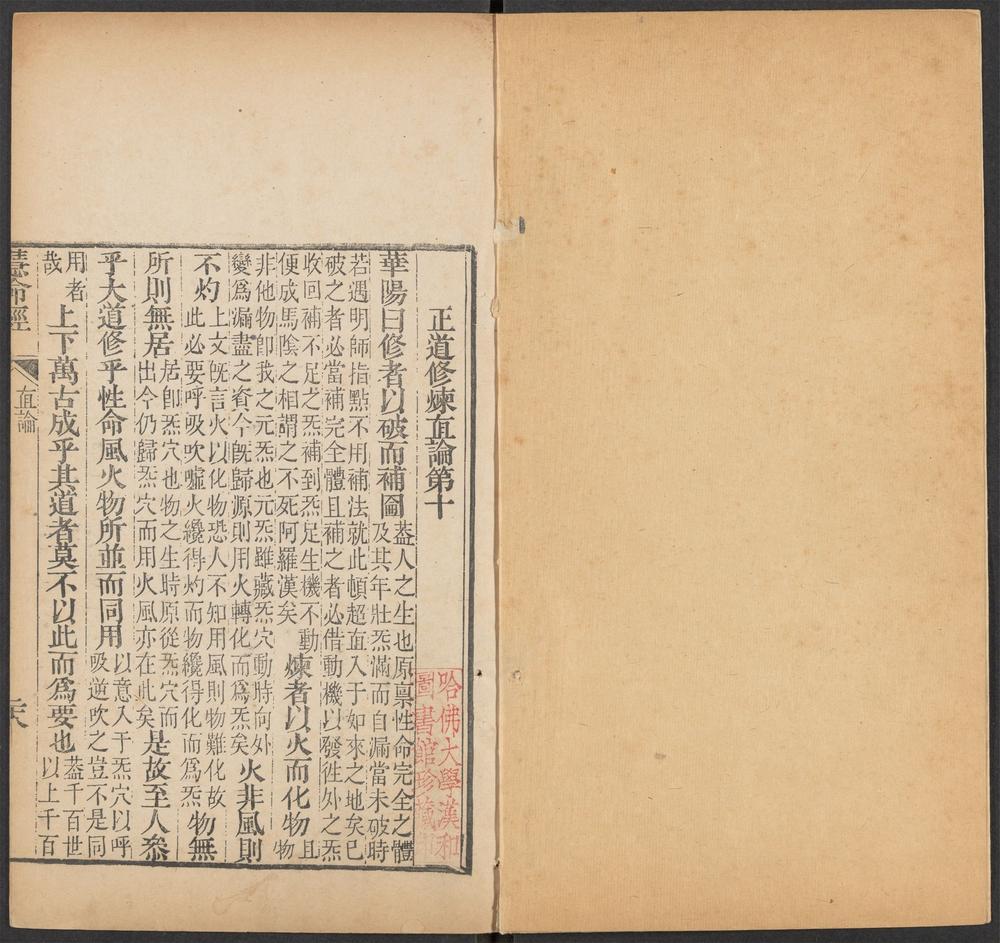 正道修煉直論第十
華陽曰修者以破而補圓
葢人之生也原禀性命完全之體
及其年壯炁滿而自漏當未破時
若遇明師指點不用補法就此頓超直入于如來之地矣已
破之者必當補完全體且補之者必借動機以發徃外之炁
收回補不足之炁補到炁足生機不動
便成馬陰之相謂之不死阿羅漢矣
煉者以火而化物
且
物
非他物卽我之元炁也元炁雖藏炁穴動時向外
變爲漏盡之資今旣歸源則用火轉化而爲炁矣
火非風則
不灼
上文旣言火以化物恐人不知用風則物難化故
此必要呼吸吹噓火纔得灼而物纔得化而爲炁
物無
所則無居
居卽炁穴也物之生時原從炁穴而
出今仍歸炁穴而用火風亦在此矣
是故至人叅
乎大道修乎性命風火物所並而同用
以意入于炁穴以呼
吸逆吹之豈不是同
用者
哉
上下萬古成乎其道者莫不以此而爲要也
葢千百世
以上千百
慧命經
直論
哈佛大學漢和
圖書館珍藏印